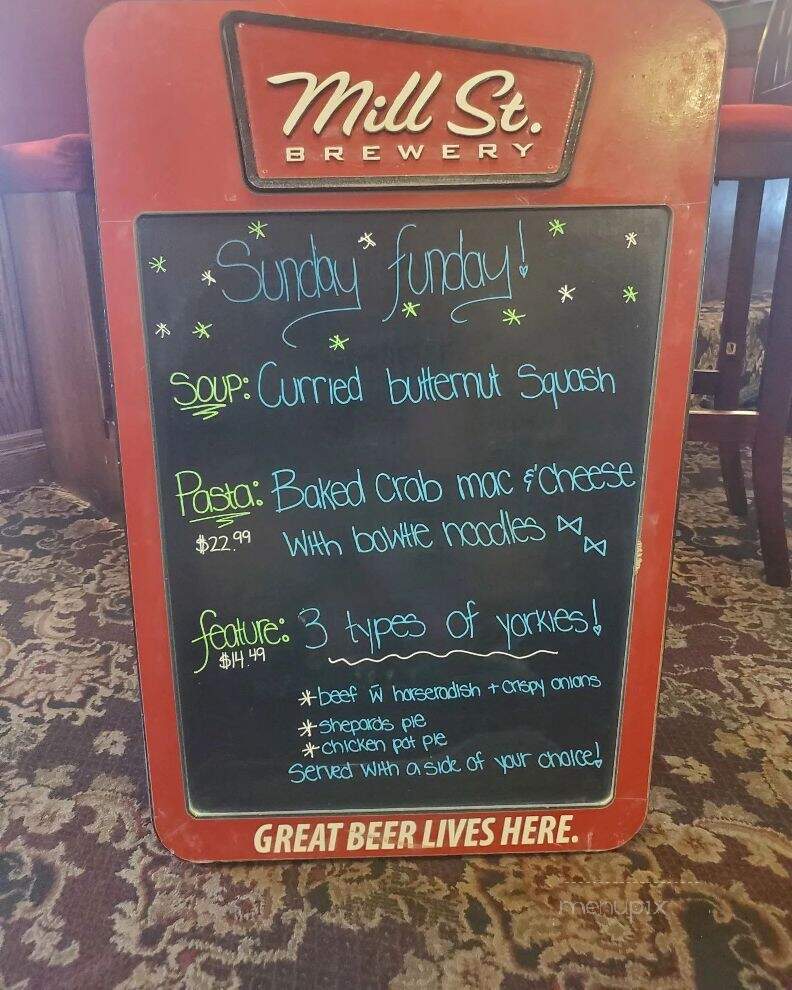 Mill St.
BREWERY
Sunday funday!
Soup: Curried butternut Squash
Pasta: Baked Crab mac & cheese
$22.99 with bowtie noodles
feature: 3 types of yorkies!
$14.49
*beef w̄ horseradish + crispy onions
*shepards pie
*chicken pot pie
Served with a side of your choice!
GREAT BEER LIVES HERE.
menupix